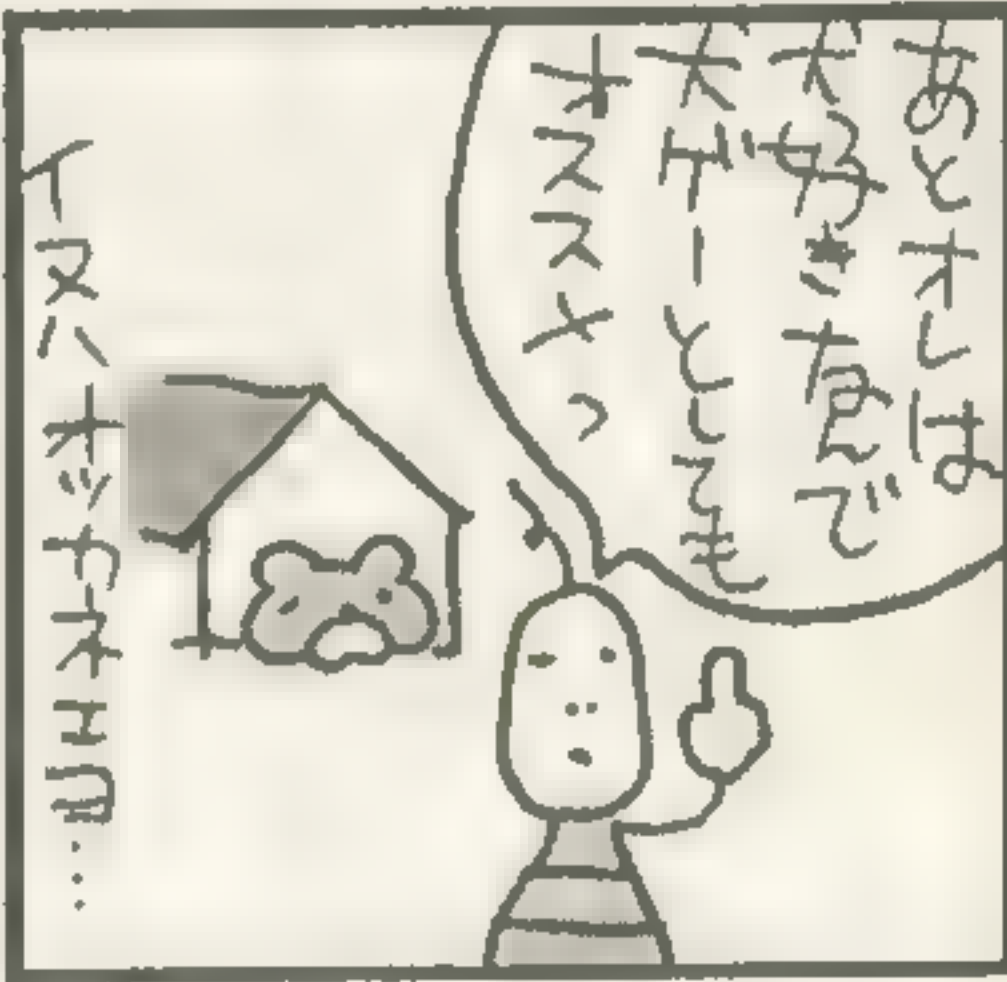 あとオレは
犬好きなんで
犬ゲーとしても
オススメっ
イヌ ジャネエヨ…